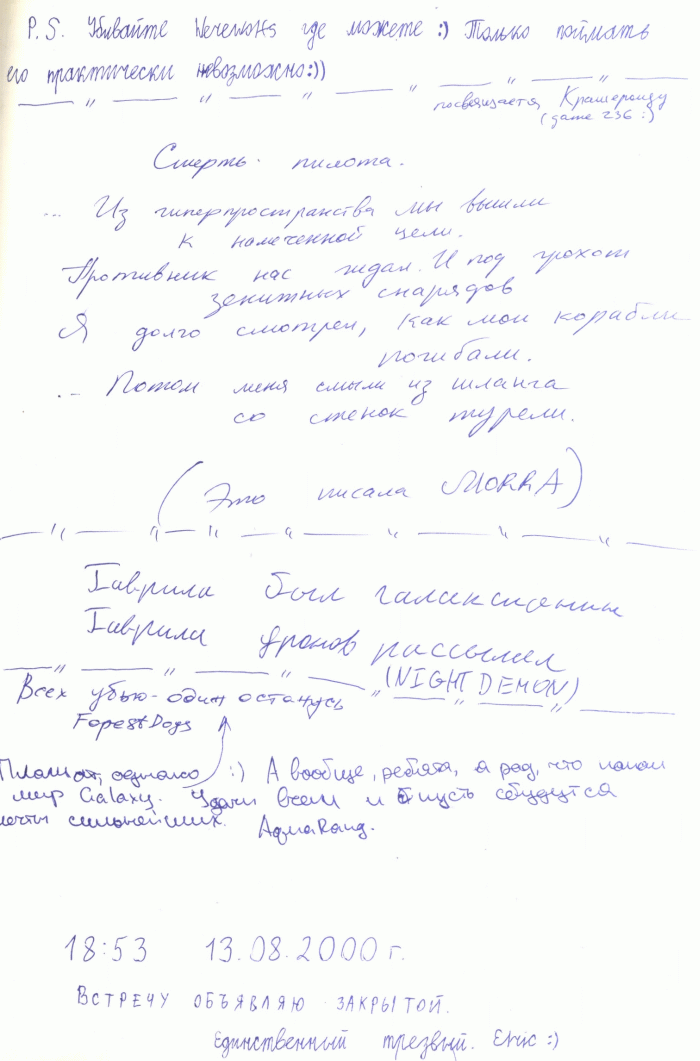 P.S. Убивайте Werewolfs где можете :) Только поймать
его практически невозможно :))
посвящается Крашеронцу
(game 236 :)
Смерть пилота.
... Из гиперпространства мы вышли
к намеченной цели.
Противник нас ждал. И под грохот
зенитных снарядов
Я долго смотрел, как мои корабли
погибали.
... Потом меня смыли из шланга
со стенок турели.
(Это писала MORRA)
Гаврила был галаксианин
Гаврила дронов рассылал
(NIGHT DEMON)
Всех убью - один останусь
ForestDogs
Плагиат, однако :) А вообще, ребята, я рад, что попал
мир Galaxy. Удачи всем и пусть сбудутся
мечты сильнейших. AquaRang.
18:53 13.08.2000 г.
ВСТРЕЧУ ОБЪЯВЛЯЮ ЗАКРЫТОЙ.
Единственный трезвый. Eric :)